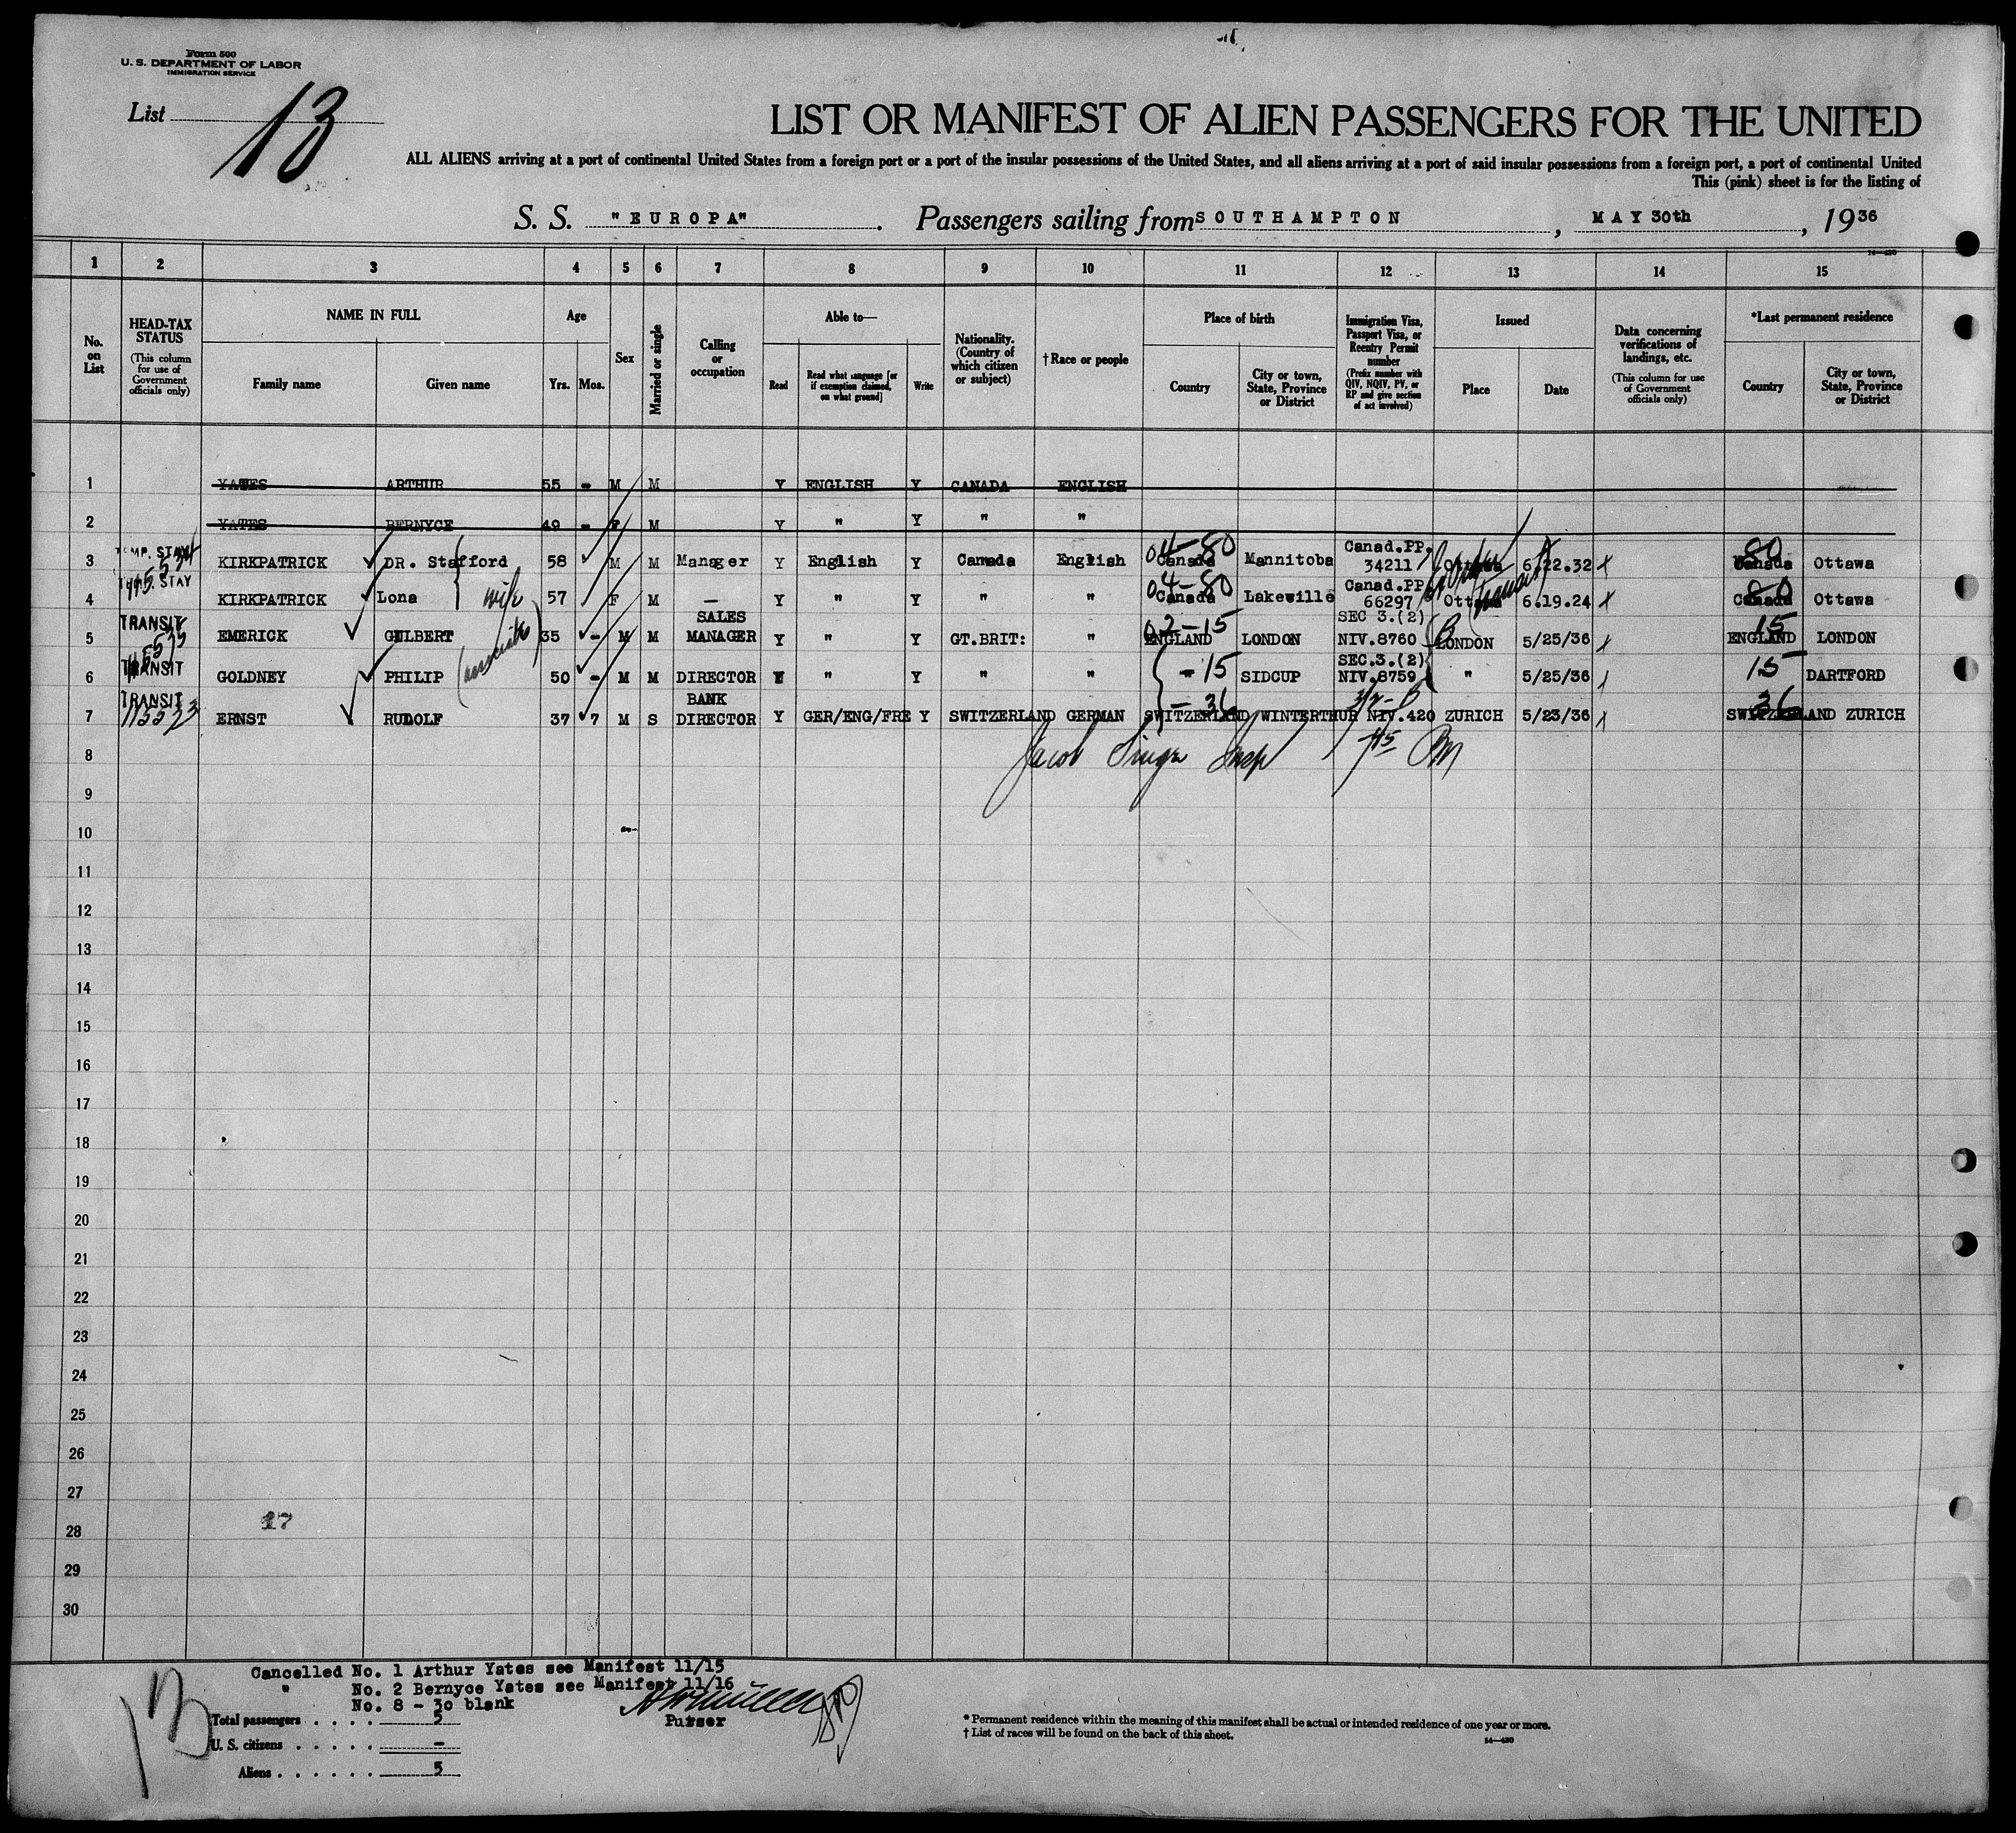 Form 500
U. S. DEPARTMENT OF LABOR
IMMIGRATION SERVICE
List 13
LIST OR MANIFEST OF ALIEN PASSENGERS FOR THE UNITED
ALL ALIENS arriving at a port of continental United States from a foreign port or a port of the insular possessions of the United States, and all aliens arriving at a port of said insular possessions from a foreign port, a port of continental United
This (pink) sheet is for the listing of
S. S. "EUROPA". Passengers sailing from SOUTHAMPTON, MAY 30th, 1936
14-430
1 2 3 4 5 6 7 8 9 10 11 12 13 14 15
No. on List
HEAD-TAX STATUS
(This column for use of Government officials only)
NAME IN FULL
Family name
Given name
Age
Yrs. Mos.
Sex
Married or single
Calling or occupation
Able to—
Read
Read what language [or if exemption claimed, on what ground]
Write
Nationality. (Country of which citizen or subject)
† Race or people
Place of birth
Country
City or town, State, Province or District
Immigration Visa, Passport Visa, or Reentry Permit number
(Prefix number with QIV, NQIV, PV, or RP and give section of act involved)
Issued
Place
Date
Data concerning verifications of landings, etc.
(This column for use of Government officials only)
*Last permanent residence
Country
City or town, State, Province or District
1 YATES ARTHUR 55 - M M Y ENGLISH Y CANADA ENGLISH
2 YATES BERNYCE 49 - F M Y " Y " "
3 TEMP. STAY KIRKPATRICK DR. Stafford 58 M M Manager Y English Y Canada English 04-80 Canada Mannitoba Canad.PP. 34211 Ottawa 6.22.32 80 Canada Ottawa
4 TEMP. STAY KIRKPATRICK Lona wife 57 F M — Y " Y " " 04-80 Canada Lakeville Canad.PP 66297 Ottawa 6.19.24 80 Canada Ottawa
5 TRANSIT EMERICK GILBERT 35 - M M SALES MANAGER Y " Y GT.BRIT: " 02-15 ENGLAND LONDON SEC 3.(2) NIV.8760 LONDON 5/25/36 15 ENGLAND LONDON
6 TRANSIT GOLDNEY PHILIP (associate) 50 - M M DIRECTOR Y " Y " " -15 SIDCUP SEC.3.(2) NIV.8759 " 5/25/36 15 DARTFORD
7 TRANSIT ERNST RUDOLF 37 7 M S BANK DIRECTOR Y GER/ENG/FRE Y SWITZERLAND GERMAN -36 SWITZERLAND WINTERTHUR NIV.420 ZURICH 5/23/36 36 SWITZERLAND ZURICH
8 Jacob Singer Insp
9
10
11
12
13
14
15
16
17
18
19
20
21
22
23
24
25
26
27
28 17
29
30
Cancelled No. 1 Arthur Yates see Manifest 11/15
" No. 2 Bernyce Yates see Manifest 11/16
No. 8 - 30 blank
Purser
13
Total passengers . . . . 5
U. S. citizens . . . . . -
Aliens . . . . . . 5
* Permanent residence within the meaning of this manifest shall be actual or intended residence of one year or more.
† List of races will be found on the back of this sheet.
14-430